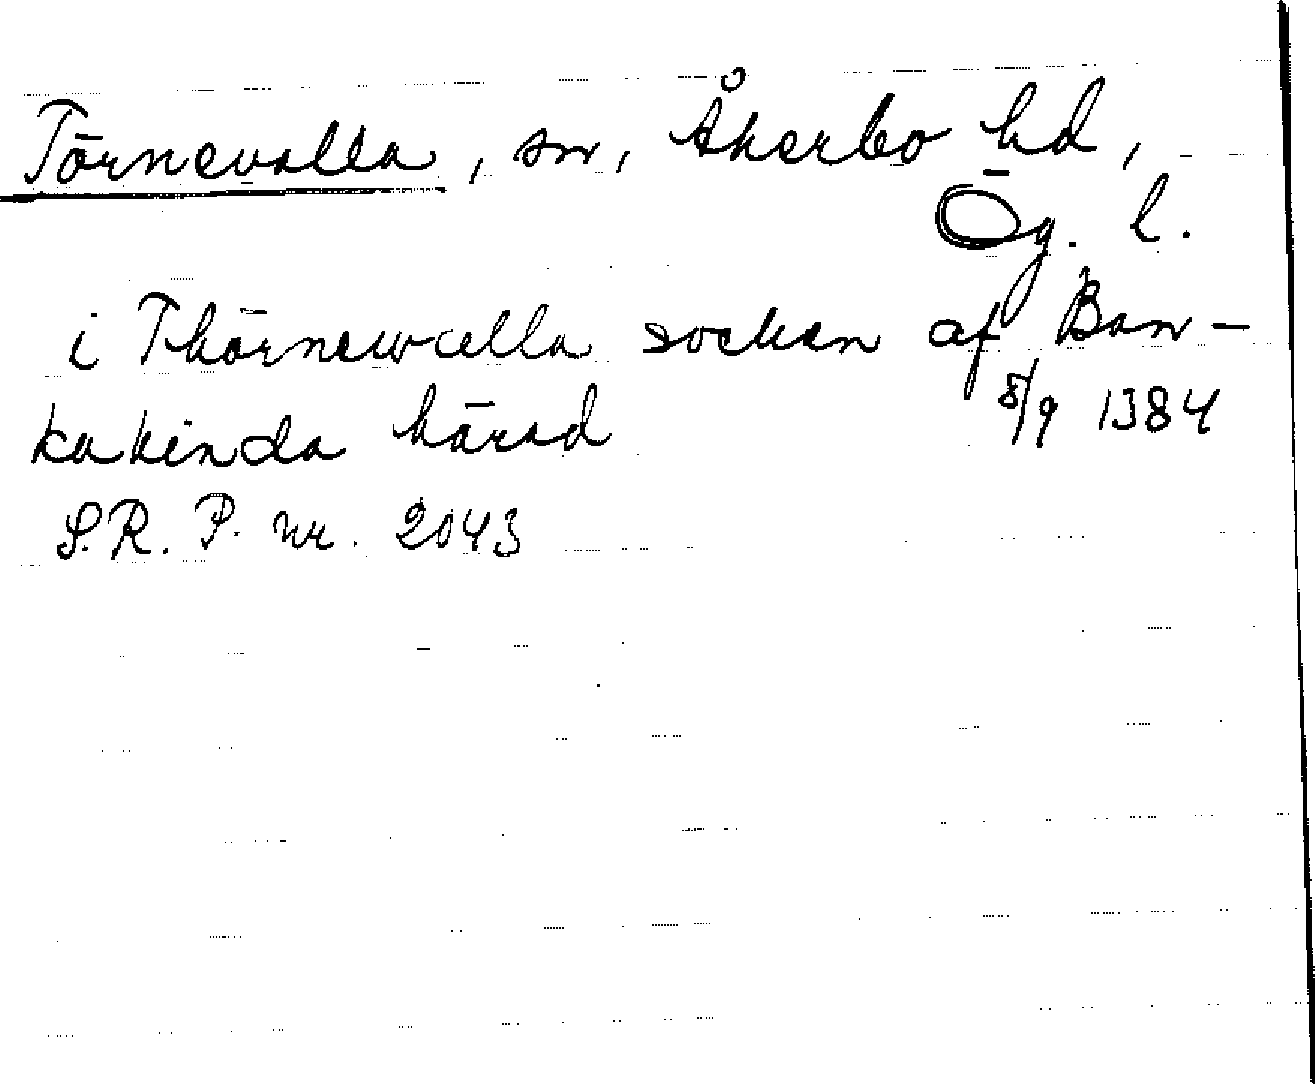 Törnevalla, sn, Åkerbo hd,
Ög. l.
i Thörnewalla socken af Ban-
kakinda härad 8/9 1384
S.R.P. nr. 2043